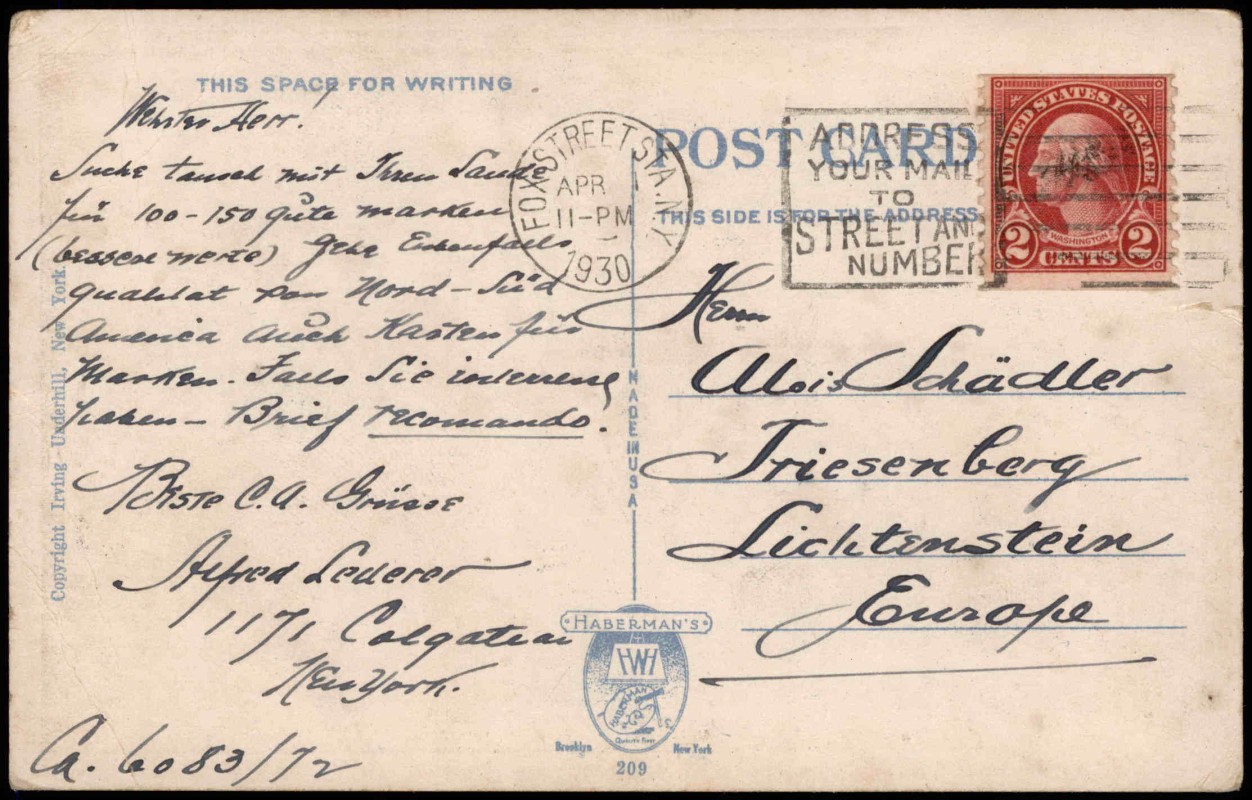 THIS SPACE FOR WRITING
Werter Herr!
Suche tausch mit Ihrem Lande
für 100-150 gute marken
(bessere werte) Gebe Ebenfalls
qualität von Nord-Süd
America auch Kasten für
Marken. Falls Sie
haben - Brief recomando!
Beste C.A. Grüsse
Alfred Lederer
1171 Colgateav
New York.
Ca. 6083/72
Copyright Irving Underhill, New York.
FOX STREET STA. N.Y.
APR
11-PM
1930
POST CARD
THIS SIDE IS FOR THE ADDRESS
ADDRESS
YOUR MAIL
TO
STREET AND
NUMBER
UNITED STATES POSTAGE
WASHINGTON
2 CENTS 2
Herrn
Alois Schädler
Triesenberg
Lichtenstein
Europe
MADE IN USA
HABERMAN'S
HWH
HABERMAN
Brooklyn New York
209